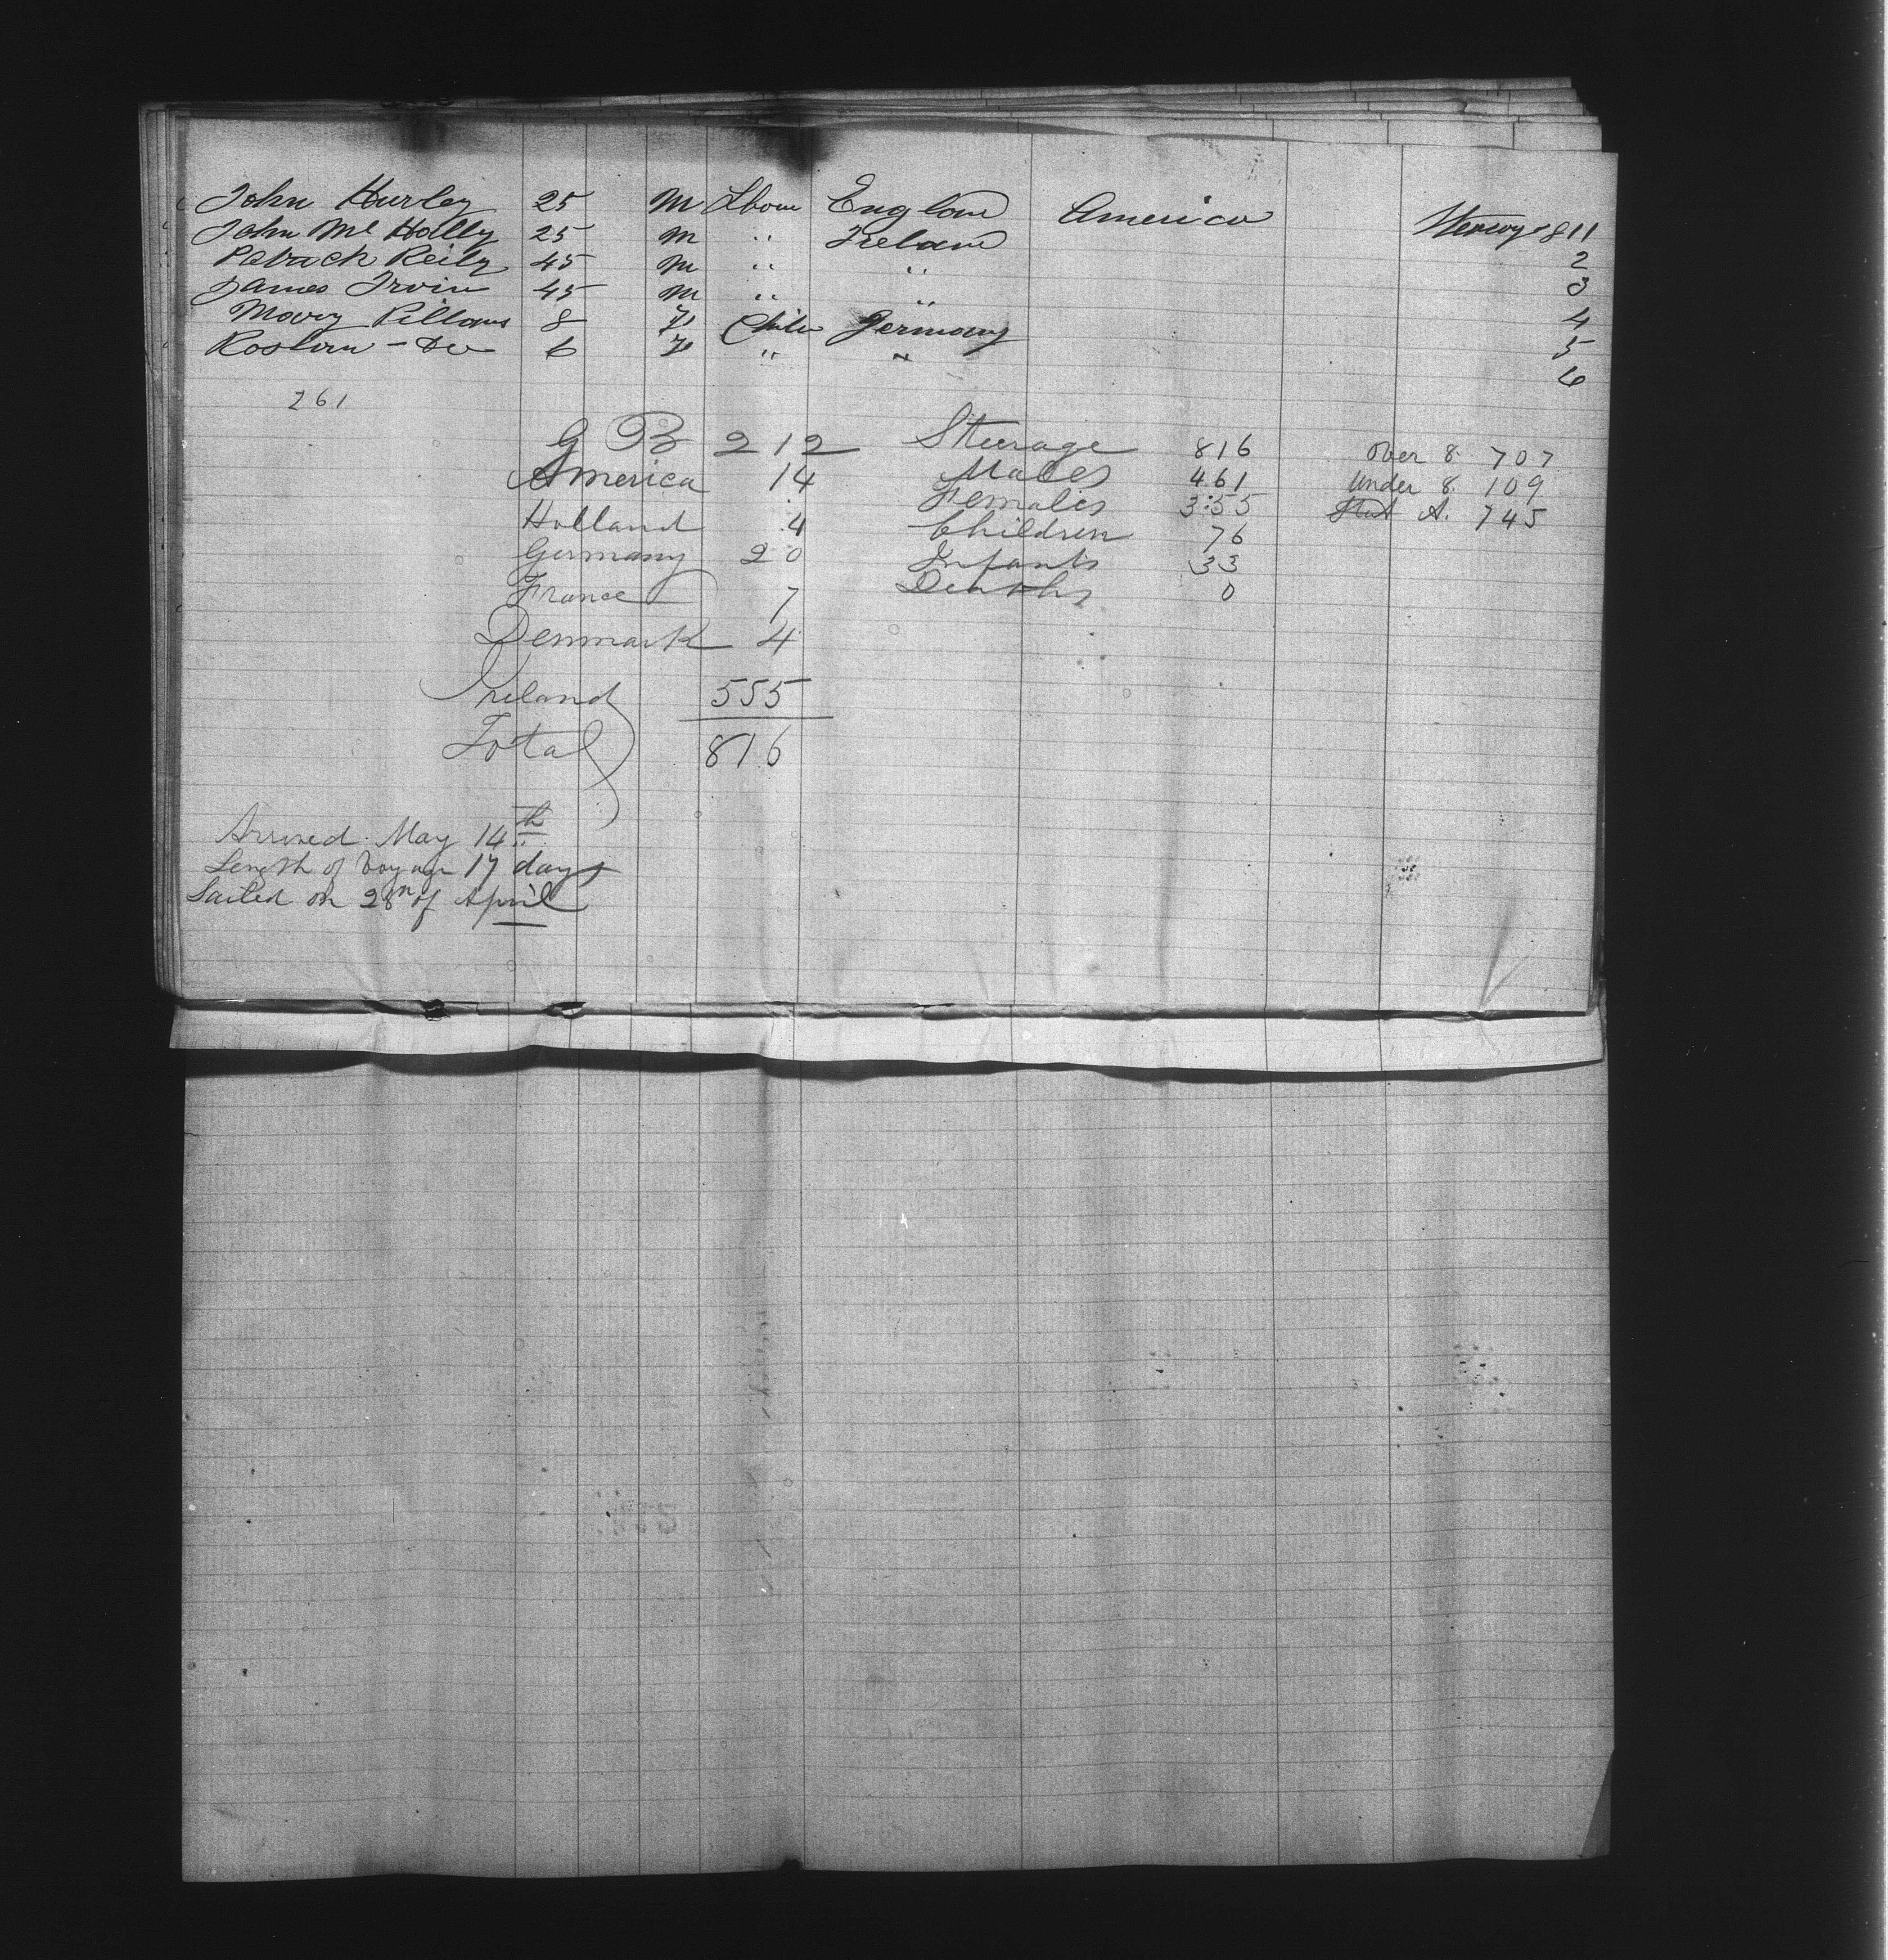 John Hurley 25 M Lbour England America Steerage 811
John Mc Holly 25 M " Ireland 2
Patrack Reily 45 M " " 3
James Irvin 45 M " " 4
Mary 8 F Child Germany 5
- Do 6 F " " 6
261
G B 212 Steerage 816 Over 8 707
America 14 Males 461 Under 8 109
Holland 4 Females 355 A. 745
Germany 20 Children 76
France 7 Infants 33
Denmark 4 Deaths 0
Ireland 555
Total 816
Arrived May 14th
Length of Voyage 17 days
Sailed on 28th of April